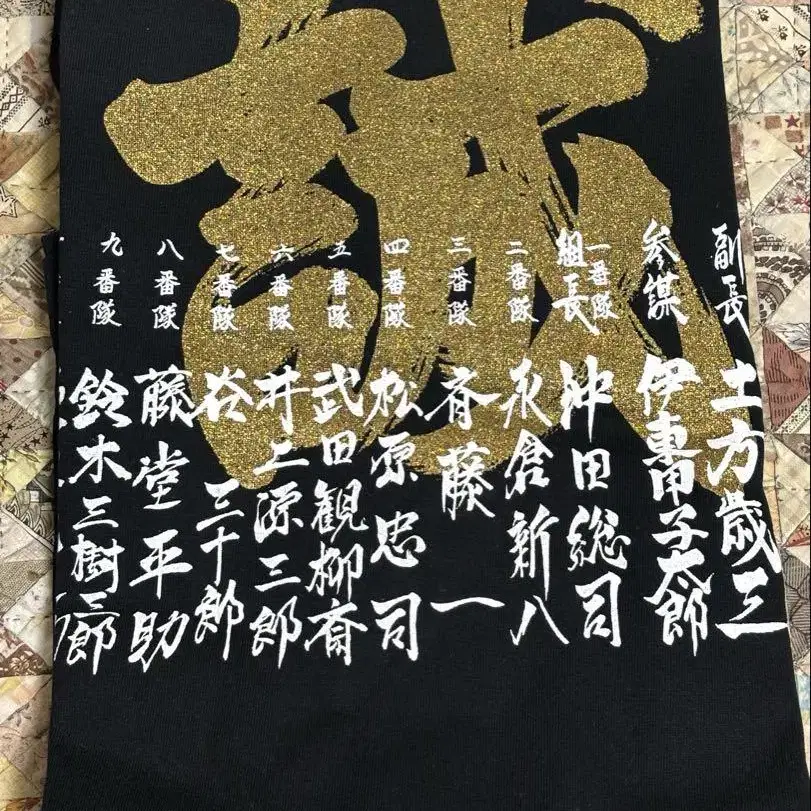 誠
副長 土方歳三
参謀 伊東甲子太郎
一番隊組長 沖田総司
二番隊 永倉新八
三番隊 斉藤一
四番隊 松原忠司
五番隊 武田観柳斎
六番隊 井上源三郎
七番隊 谷三十郎
八番隊 藤堂平助
九番隊 鈴木三樹三郎